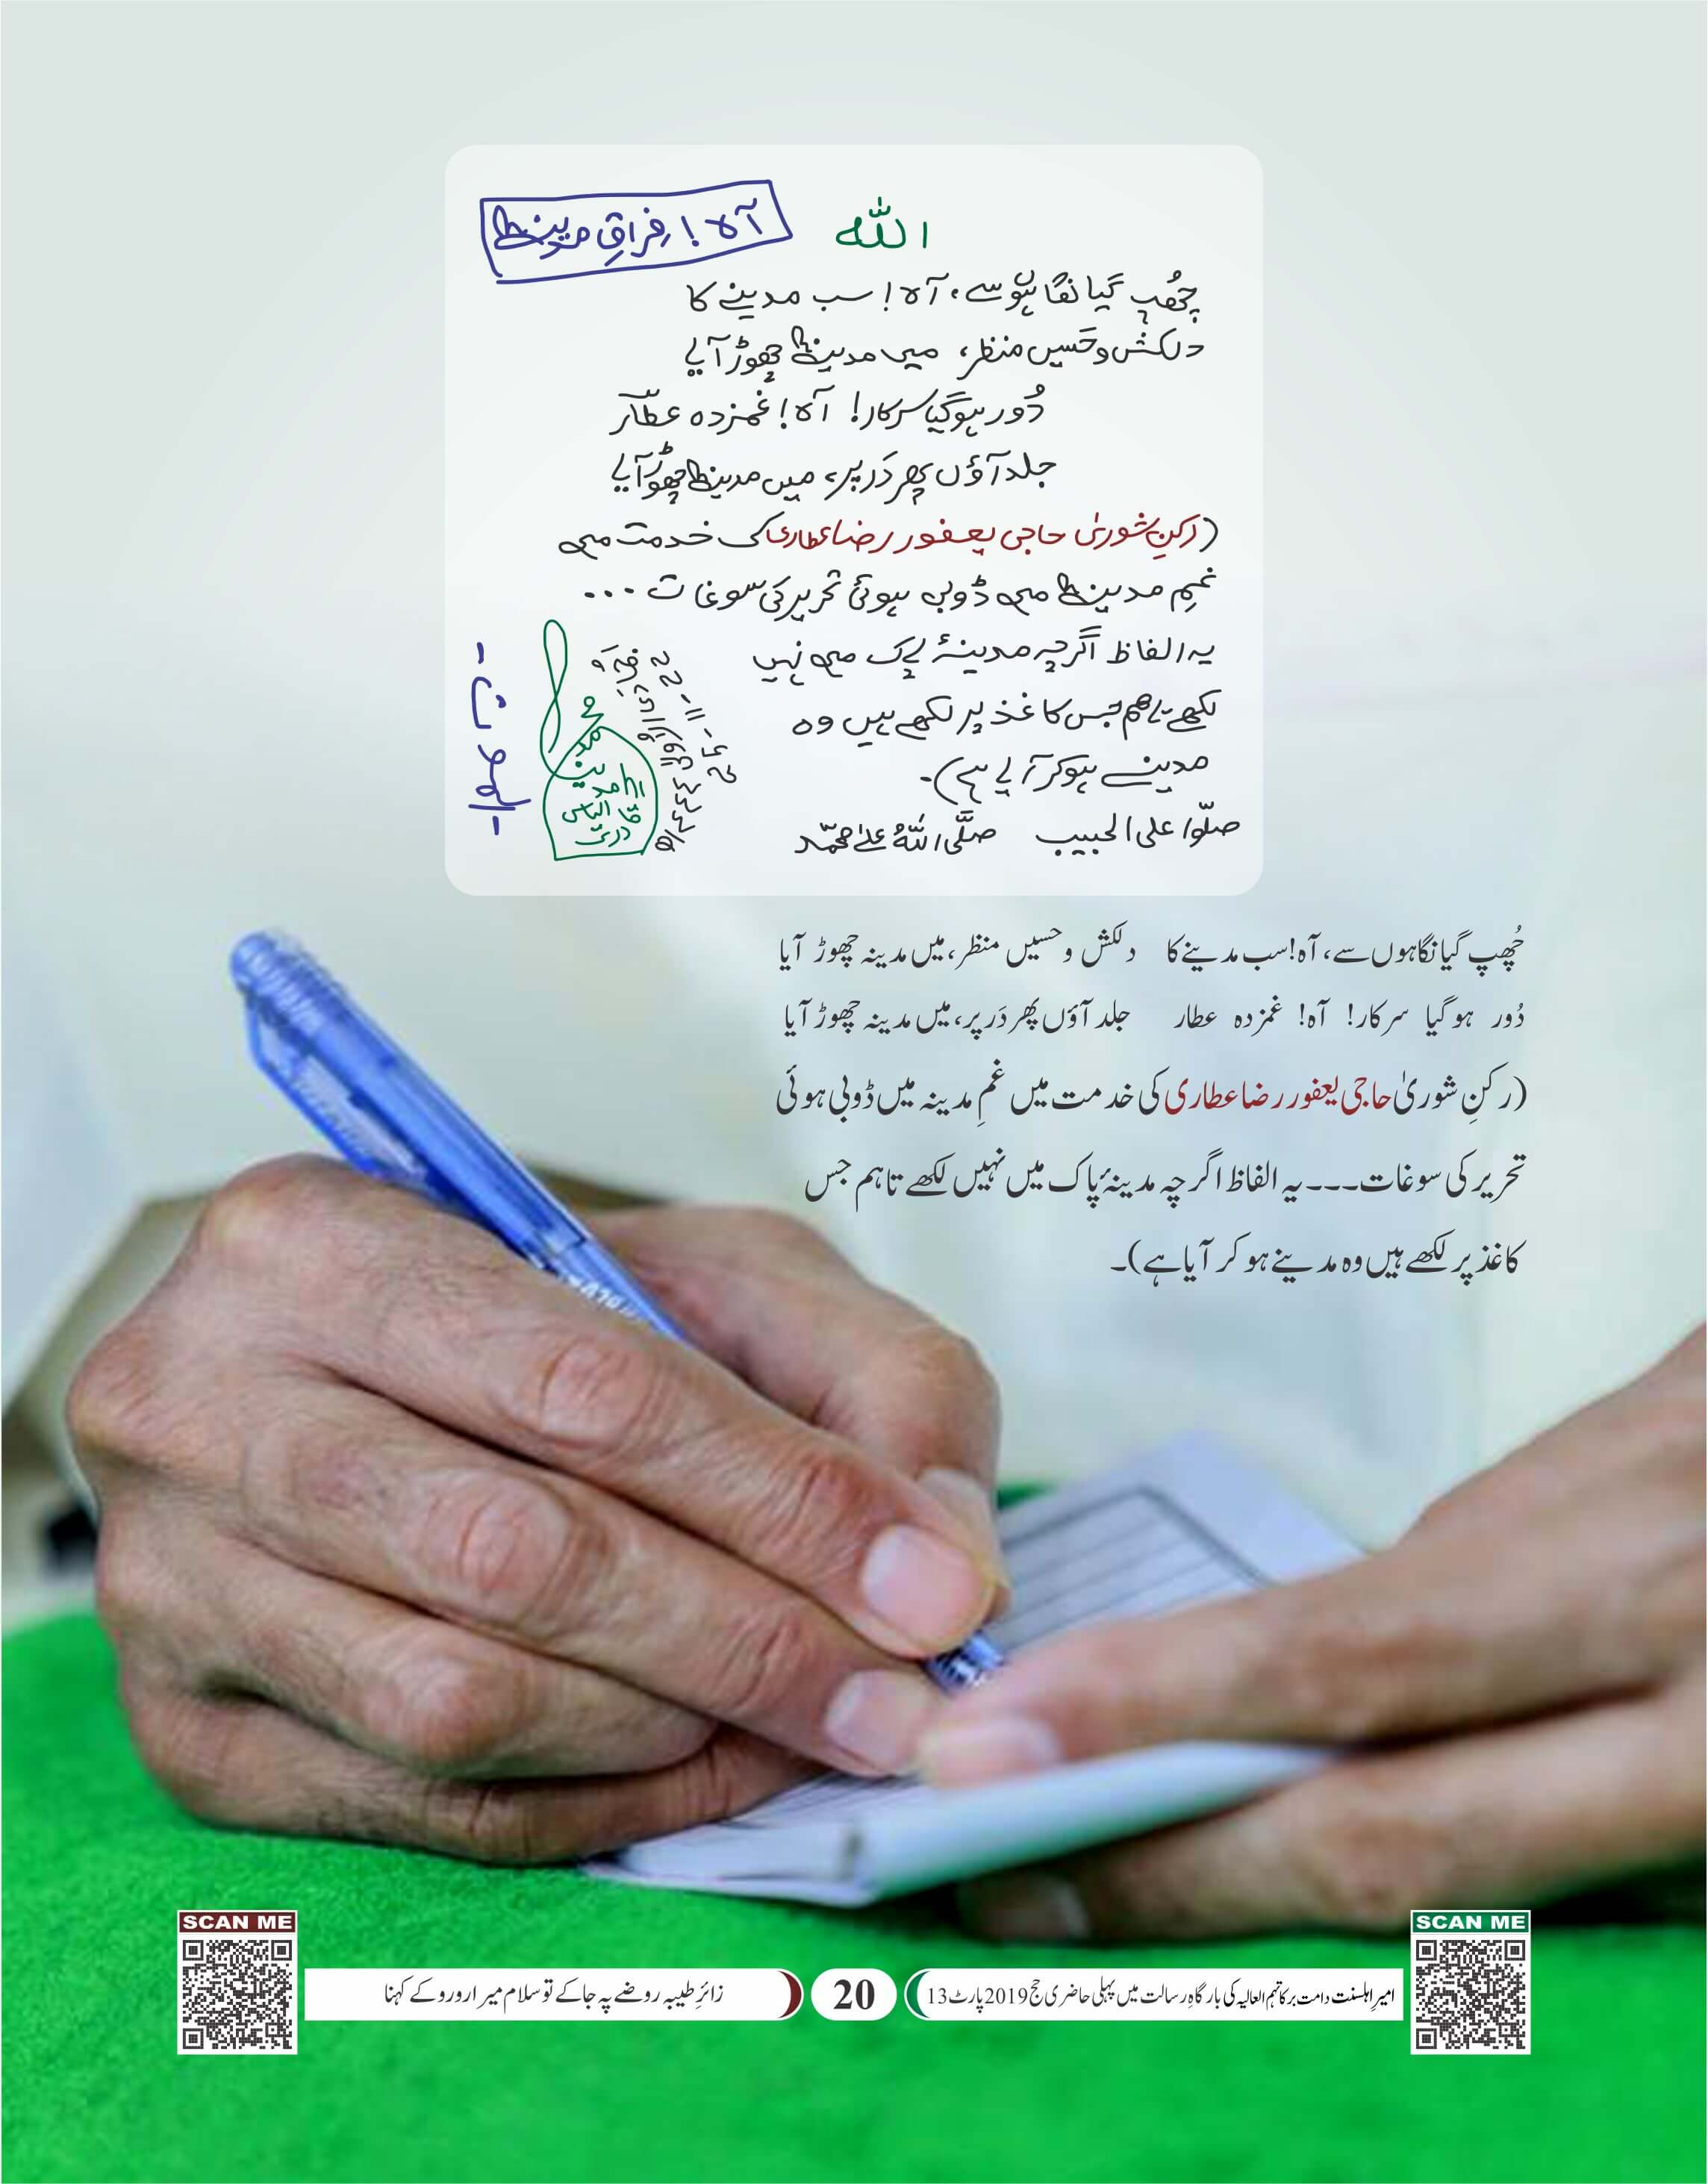 الله
آہ! فراقِ مدینہ
چُھپ گیا نگاہوں سے، آہ! سب مدینے کا
دلکش و حَسیں منظر، میں مدینہ چھوڑ آیا
دُور ہوگیا سرکار! آہ! غمزدہ عطّار
جلد آؤں پھر دَر پر، میں مدینہ چھوڑ آیا
(رکنِ شوریٰ حاجی یعفور رضا عطاری کی خدمت میں
غمِ مدینہ میں ڈوبی ہوئی تحریر کی سوغات ...
یہ الفاظ اگرچہ مدینۂ پاک میں نہیں
لکھے تاہم جس کاغذ پر لکھے ہیں وہ
مدینے ہوکر آیا ہے)۔
صلّوا علی الحبیب صلَّی اللہُ علیٰ محمّد
چُھپ گیا نگاہوں سے، آہ! سب مدینے کا دلکش و حسیں منظر، میں مدینہ چھوڑ آیا
دُور ہوگیا سرکار! آہ! غمزدہ عطار جلد آؤں پھر دَر پر، میں مدینہ چھوڑ آیا
(رکنِ شوریٰ حاجی یعفور رضا عطاری کی خدمت میں غمِ مدینہ میں ڈوبی ہوئی
تحریر کی سوغات۔۔۔ یہ الفاظ اگرچہ مدینۂ پاک میں نہیں لکھے تاہم جس
کاغذ پر لکھے ہیں وہ مدینے ہو کر آیا ہے)۔
SCAN ME
SCAN ME
امیرِ اہلسنت دامت برکاتہم العالیہ کی بارگاہِ رسالت میں پہلی حاضری حج 2019 پارٹ 13
20
زائرِ طیبہ روضے پہ جا کے تو سلام میرا رو رو کے کہنا